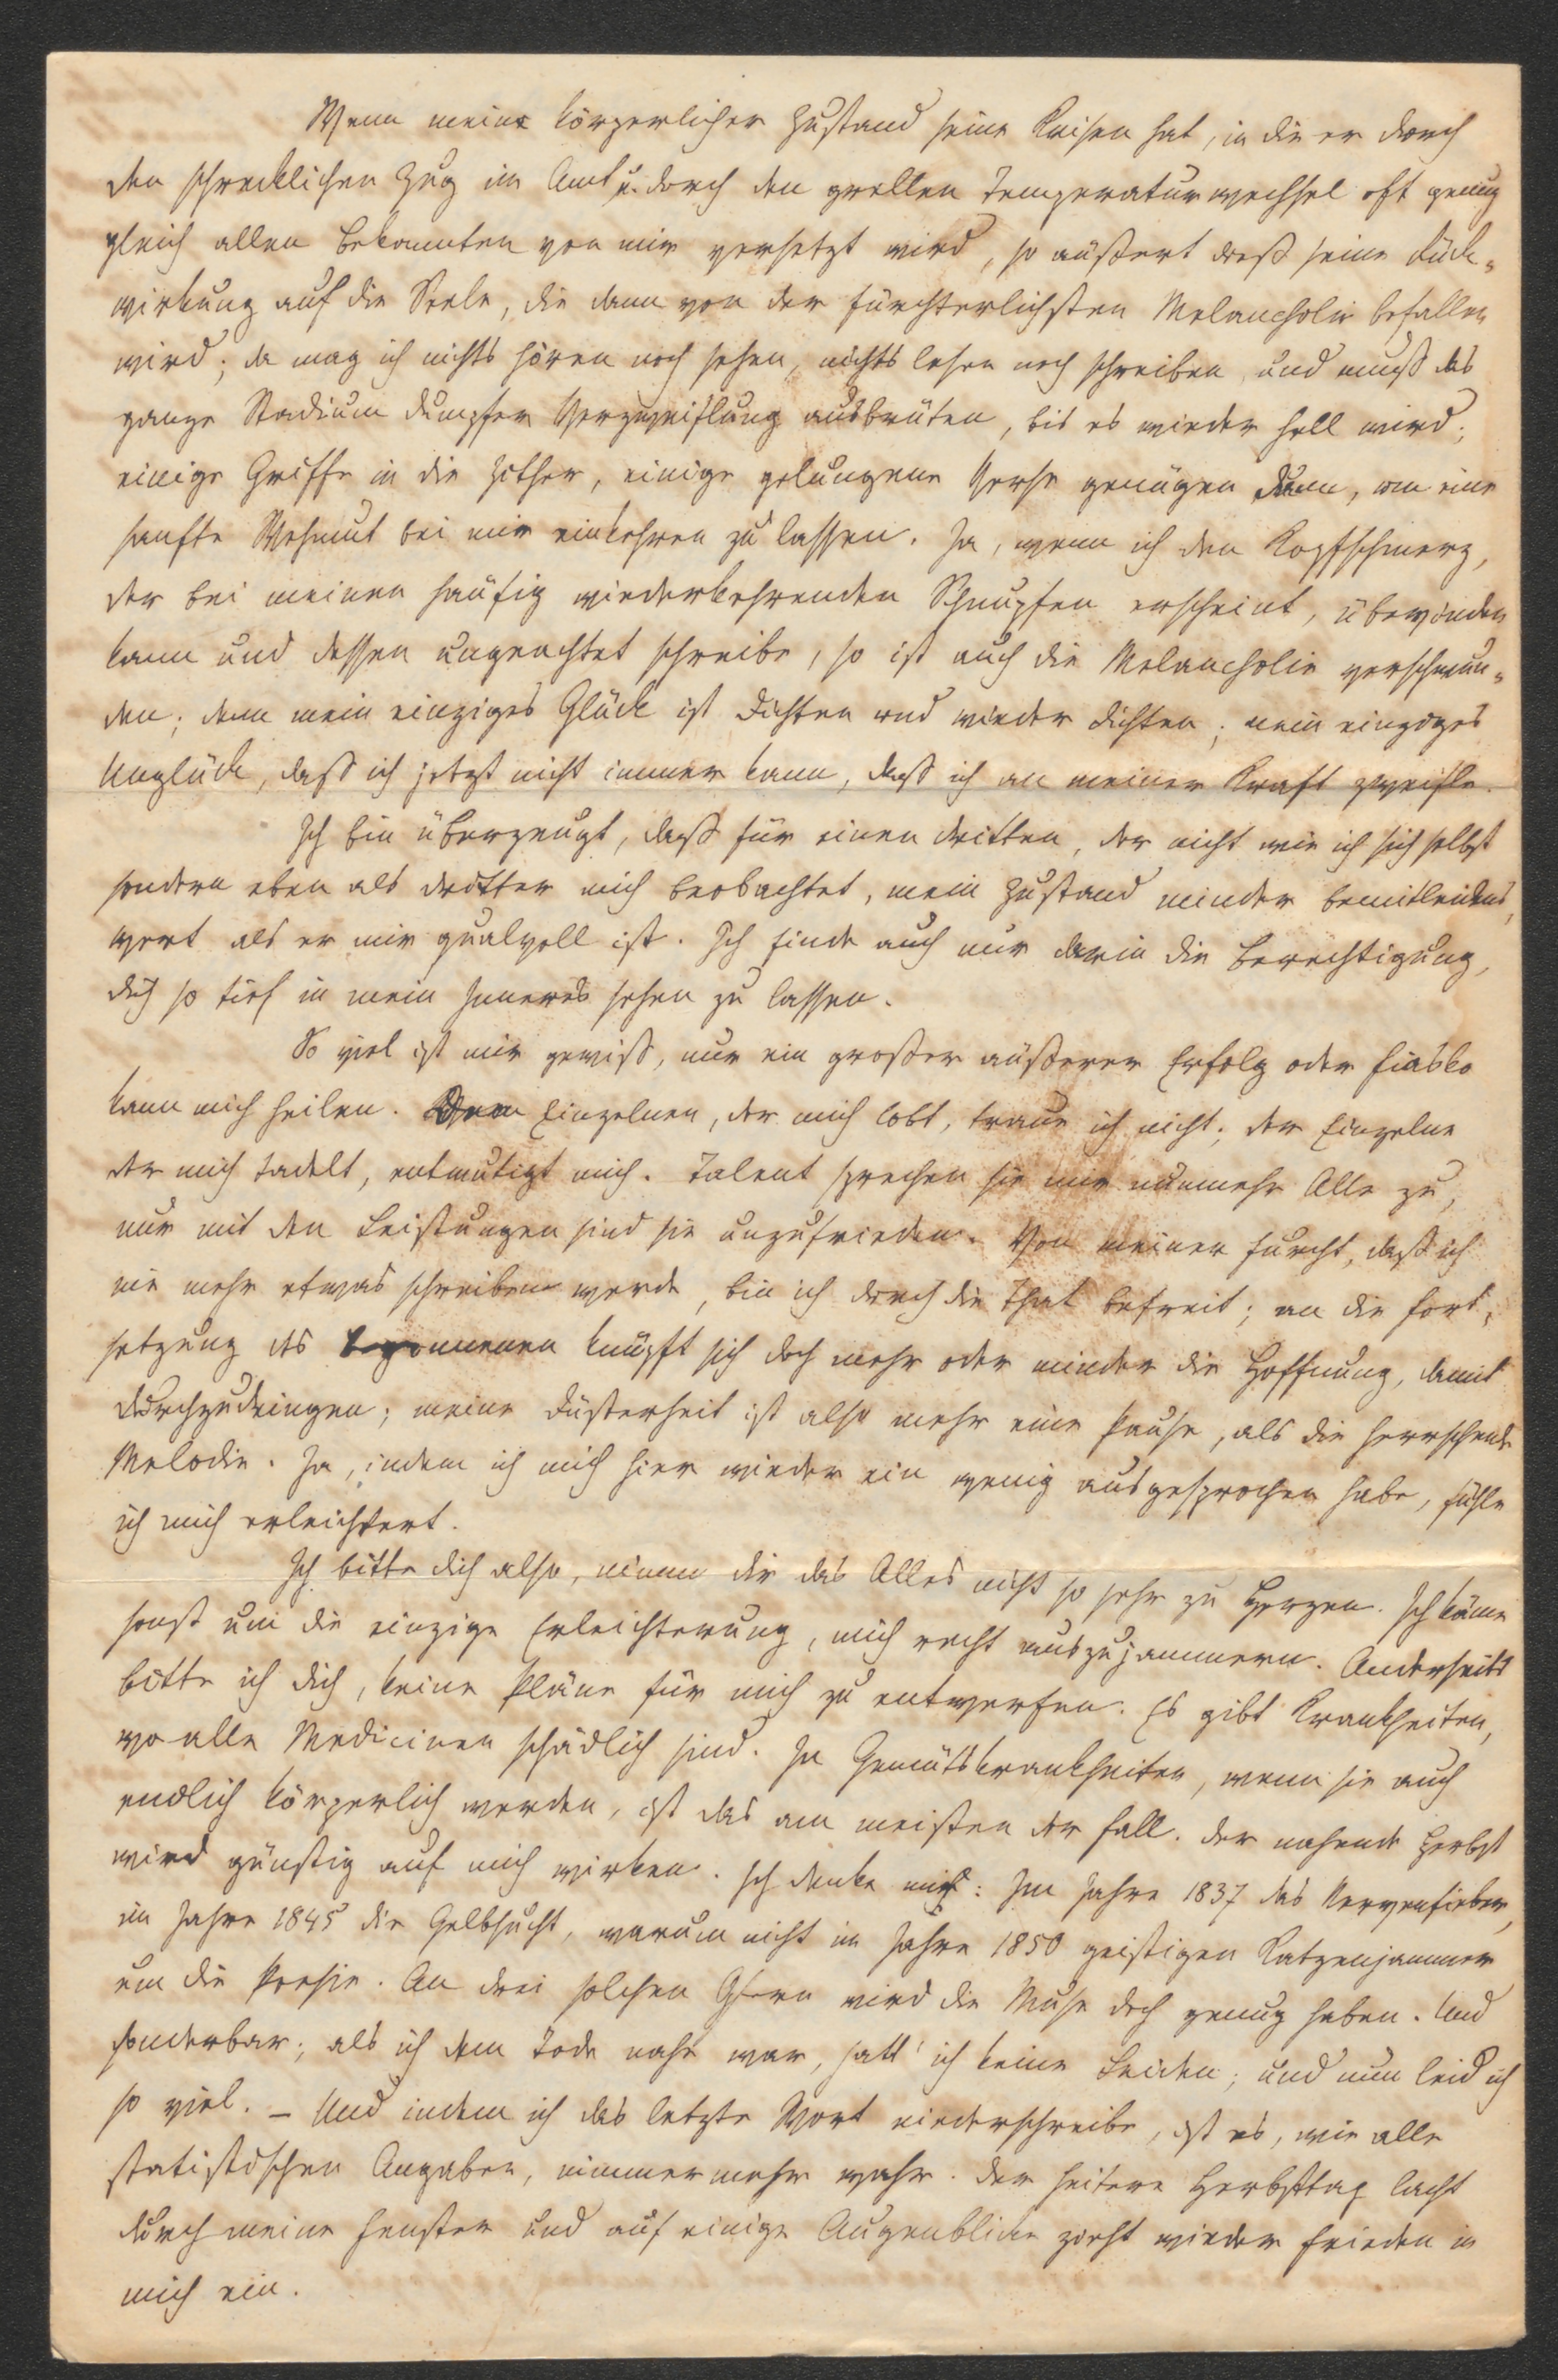 Wenn mein körperlicher Zustand seine Krisen hat, in die er durch
den schrecklichen Zug im Amt u. durch den grellen Temperaturwechsel oft genug
gleich allen Bekannten von mir versetzt wird, so äußert dieß seine Rück-
wirkung auf die Seele, die dann von der fürchterlichsten Melancholie befallen
wird; da mag ich nichts hören noch sehen, nichts lesen noch schreiben und muß das
ganze Stadium dumpfer Verzweiflung ausbrüten, bis es wieder hell wird;
einige Griffe in die Zither, einige gelungene Verse genügen dann, um eine
sanfte Wehmut bei mir einkehren zu lassen. Ja, wenn ich den Kopfschmerz,
der bei meinen häufig wiederkehrenden Schnupfen erscheint, überwinden
kann und dessen ungeachtet schreibe, so ist auch die Melancholie verschwun-
den; denn mein einziges Glück ist dichten und wieder dichten; mein einziges
Unglück, daß ich jetzt nicht immer kann, daß ich an meiner Kraft zweifle.
Ich bin überzeugt, daß für einen dritten, der nicht wie ich sich selbst
sondern eben als dritter mich beobachtet, mein Zustand minder bemitleidens-
wert als er mir qualvoll ist. Ich finde auch nur darin die Berechtigung,
dich so tief in mein Inneres sehen zu lassen.
So viel ist mir gewiß, nur ein großer äußerer Erfolg oder Fiasko
kann mich heilen. Dem Einzelnen, der mich lobt, traue ich nicht; der Einzelne
der mich tadelt, entmutigt mich. Talent sprechen sie mir nunmehr Alle zu,
nur mit den Leistungen sind sie unzufrieden. Von meiner Furcht, daß ich
nie mehr etwas schreiben werde, bin ich durch die That befreit; an die Fort-
setzung des begonnenen knüpft sich doch mehr oder minder die Hoffnung, damit
durchzudringen; meine Düsterheit ist also mehr eine Pause, als die herrschende
Melodie. Ja, indem ich mich hier wieder ein wenig ausgesprochen habe, fühle
ich mich erleichtert.
Ich bitte dich also, nimm dir das Alles nicht so sehr zu Herzen. Ich käme
sonst um die einzige Erleichterung, mich recht auszujammern. Anderseits
bitte ich dich, keine Pläne für mich zu entwerfen. Es gibt Krankheiten,
wo alle Medicinen schädlich sind. In Gemütskrankheiten, wenn sie auch
endlich körperlich werden, ist das am meisten der Fall. Der nahende Herbst
wird günstig auf mich wirken. Ich denke mir: Im Jahre 1837 das Nervenfieber,
im Jahre 1845 die Gelbsucht, warum nicht im Jahre 1850 geistigen Katzenjammer
um die Poesie. An drei solchen Opfern wird die Muse doch genug haben. Und
sonderbar; als ich dem Tode nahe war, hatt' ich keine Leiden; und nun leid ich
so viel. – Und indem ich das letzte Wort niederschreibe, ist es, wie alle
statistischen Angaben, nimmermehr wahr. Der heitere Herbsttag lacht
durch meine Fenster und auf einige Augenblicke zieht wieder Frieden in
mich ein.